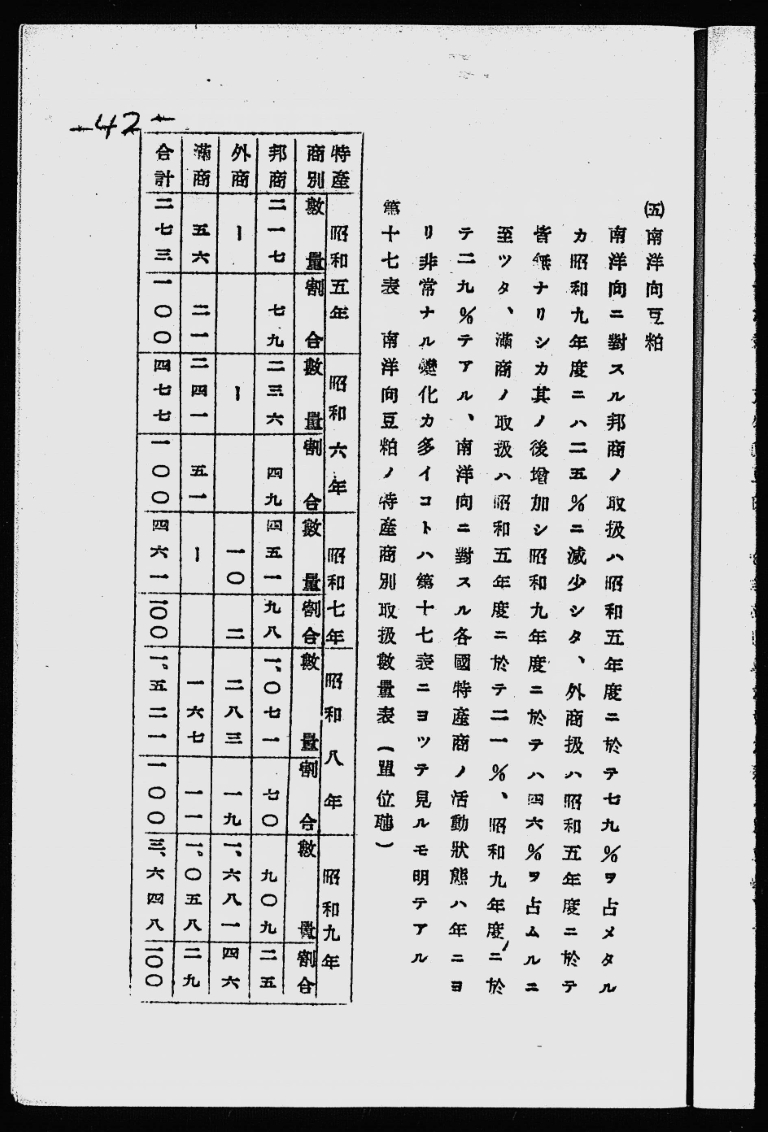 -42-
㈤南洋向豆粕
南洋向ニ對スル邦商ノ取扱ハ昭和五年度ニ於テ七九％ヲ占メタル
カ昭和九年度ニハ二五％ニ減少シタ、外商扱ハ昭和五年度ニ於テ
皆無ナリシカ其ノ後增加シ昭和九年度ニ於テハ四六％ヲ占ムルニ
至ツタ、滿商ノ取扱ハ昭和五年度ニ於テ二一％、昭和九年度ニ於
テ二九％テアル、南洋向ニ對スル各國特產商ノ活動狀態ハ年ニヨ
リ非常ナル變化カ多イコトハ第十七表ニヨツテ見ルモ明テアル
第十七表　南洋向豆粕ノ特產商別取扱數量表（單位瓲）
特產 昭和五年 昭和六年 昭和七年 昭和八年 昭和九年
商別 數量 割合 數量 割合 數量 割合 數量 割合 數量 割合
邦商 二一七 七九 二三六 四九 四五一 九八 一、〇七一 七〇 九〇九 二五
外商 ー ー 一〇 二 二八三 一九 一、六八一 四六
滿商 五六 二一 二四一 五一 ー 一六七 一一 一、〇五八 二九
合計 二七三 一〇〇 四七七 一〇〇 四六一 一〇〇 一、五二一 一〇〇 三、六四八 一〇〇